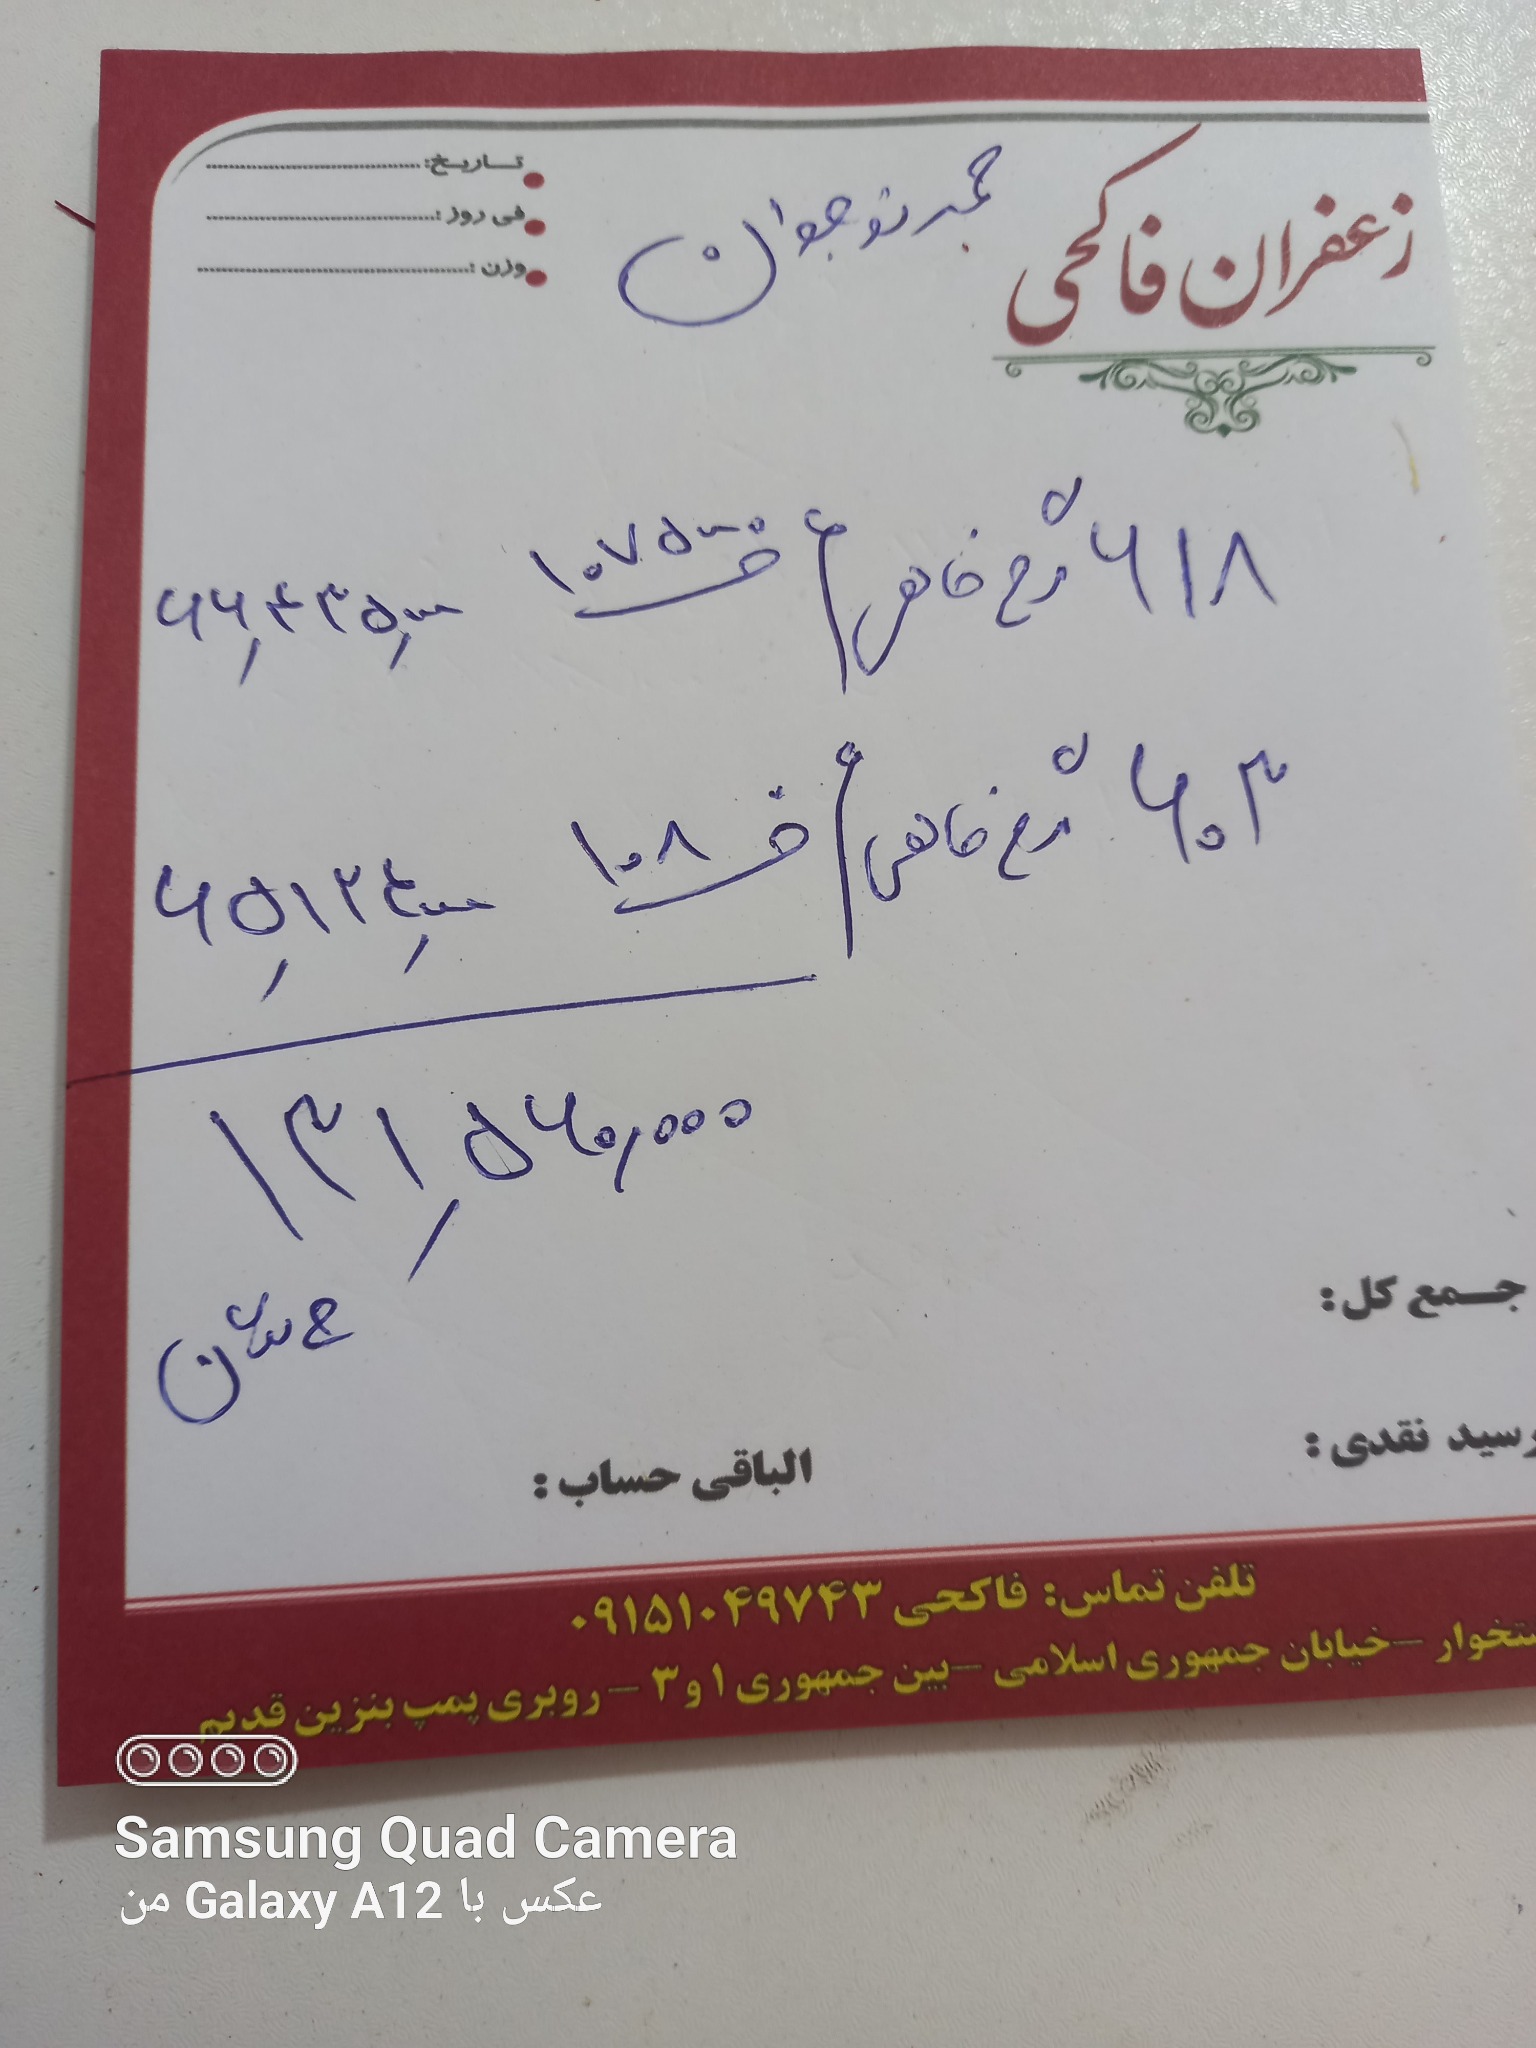 زعفران فاکحی
نوجوان
تاریخ:
فی روز:
وزن:
۶۱۸ گرم ف ۱۰۷۵۰۰ ۶۶,۴۳۵,
۶۰۳ گرم ف ۱۰۸ ۶۵,۱۲۴,
۱۳۱,۵۶۰,۰۰۰
جمع کل:
رسید نقدی:
الباقی حساب:
تلفن تماس: فاکحی ۰۹۱۵۱۰۴۹۷۴۳
خیابان جمهوری اسلامی – بین جمهوری ۱ و ۳ – روبری پمپ بنزین قدیم
Samsung Quad Camera
عکس با Galaxy A12 من